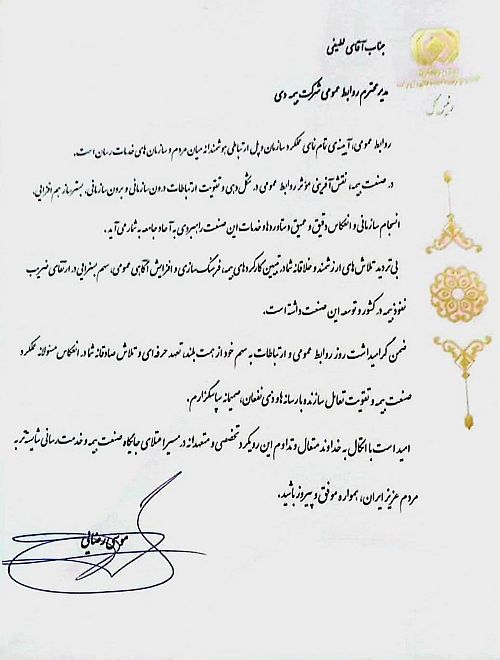 جناب آقای لطیفی
مدیر محترم روابط عمومی شرکت بیمه دی
روابط عمومی، آیینه‌ی تمام نمای عملکرد سازمان و پل ارتباطی هوشمندانه میان مردم و سازمان های خدمات رسان است.
در صنعت بیمه، نقش آفرینی مؤثر روابط عمومی در شکل دهی و تقویت ارتباطات درون سازمانی و برون سازمانی، بستر ساز هم افزایی،
انسجام سازمانی و انعکاس دقیق و عمیق دستاوردها و خدمات این صنعت راهبردی به آحاد جامعه به شمار می آید.
بی تردید تلاش های ارزشمند و خلاقانه شما در تبیین کارکردهای بیمه، فرهنگ سازی و افزایش آگاهی عمومی، سهم بسزایی در ارتقای ضریب
نفوذ بیمه در کشور و توسعه این صنعت داشته است.
ضمن گرامیداشت روز روابط عمومی و ارتباطات به سهم خود از همت بلند، تعهد حرفه ای و تلاش صادقانه شما در انعکاس مسئولانه عملکرد
صنعت بیمه و تقویت تعامل سازنده با رسانه ها و ذی نفعان، صمیمانه سپاسگزارم.
امید است با اتکال به خداوند متعال و تداوم این رویکرد تخصصی و متعهدانه در مسیر اعتلای جایگاه صنعت بیمه و خدمت رسانی شایسته تر به
مردم عزیز ایران، همواره موفق و پیروز باشید.
موسی رضائی